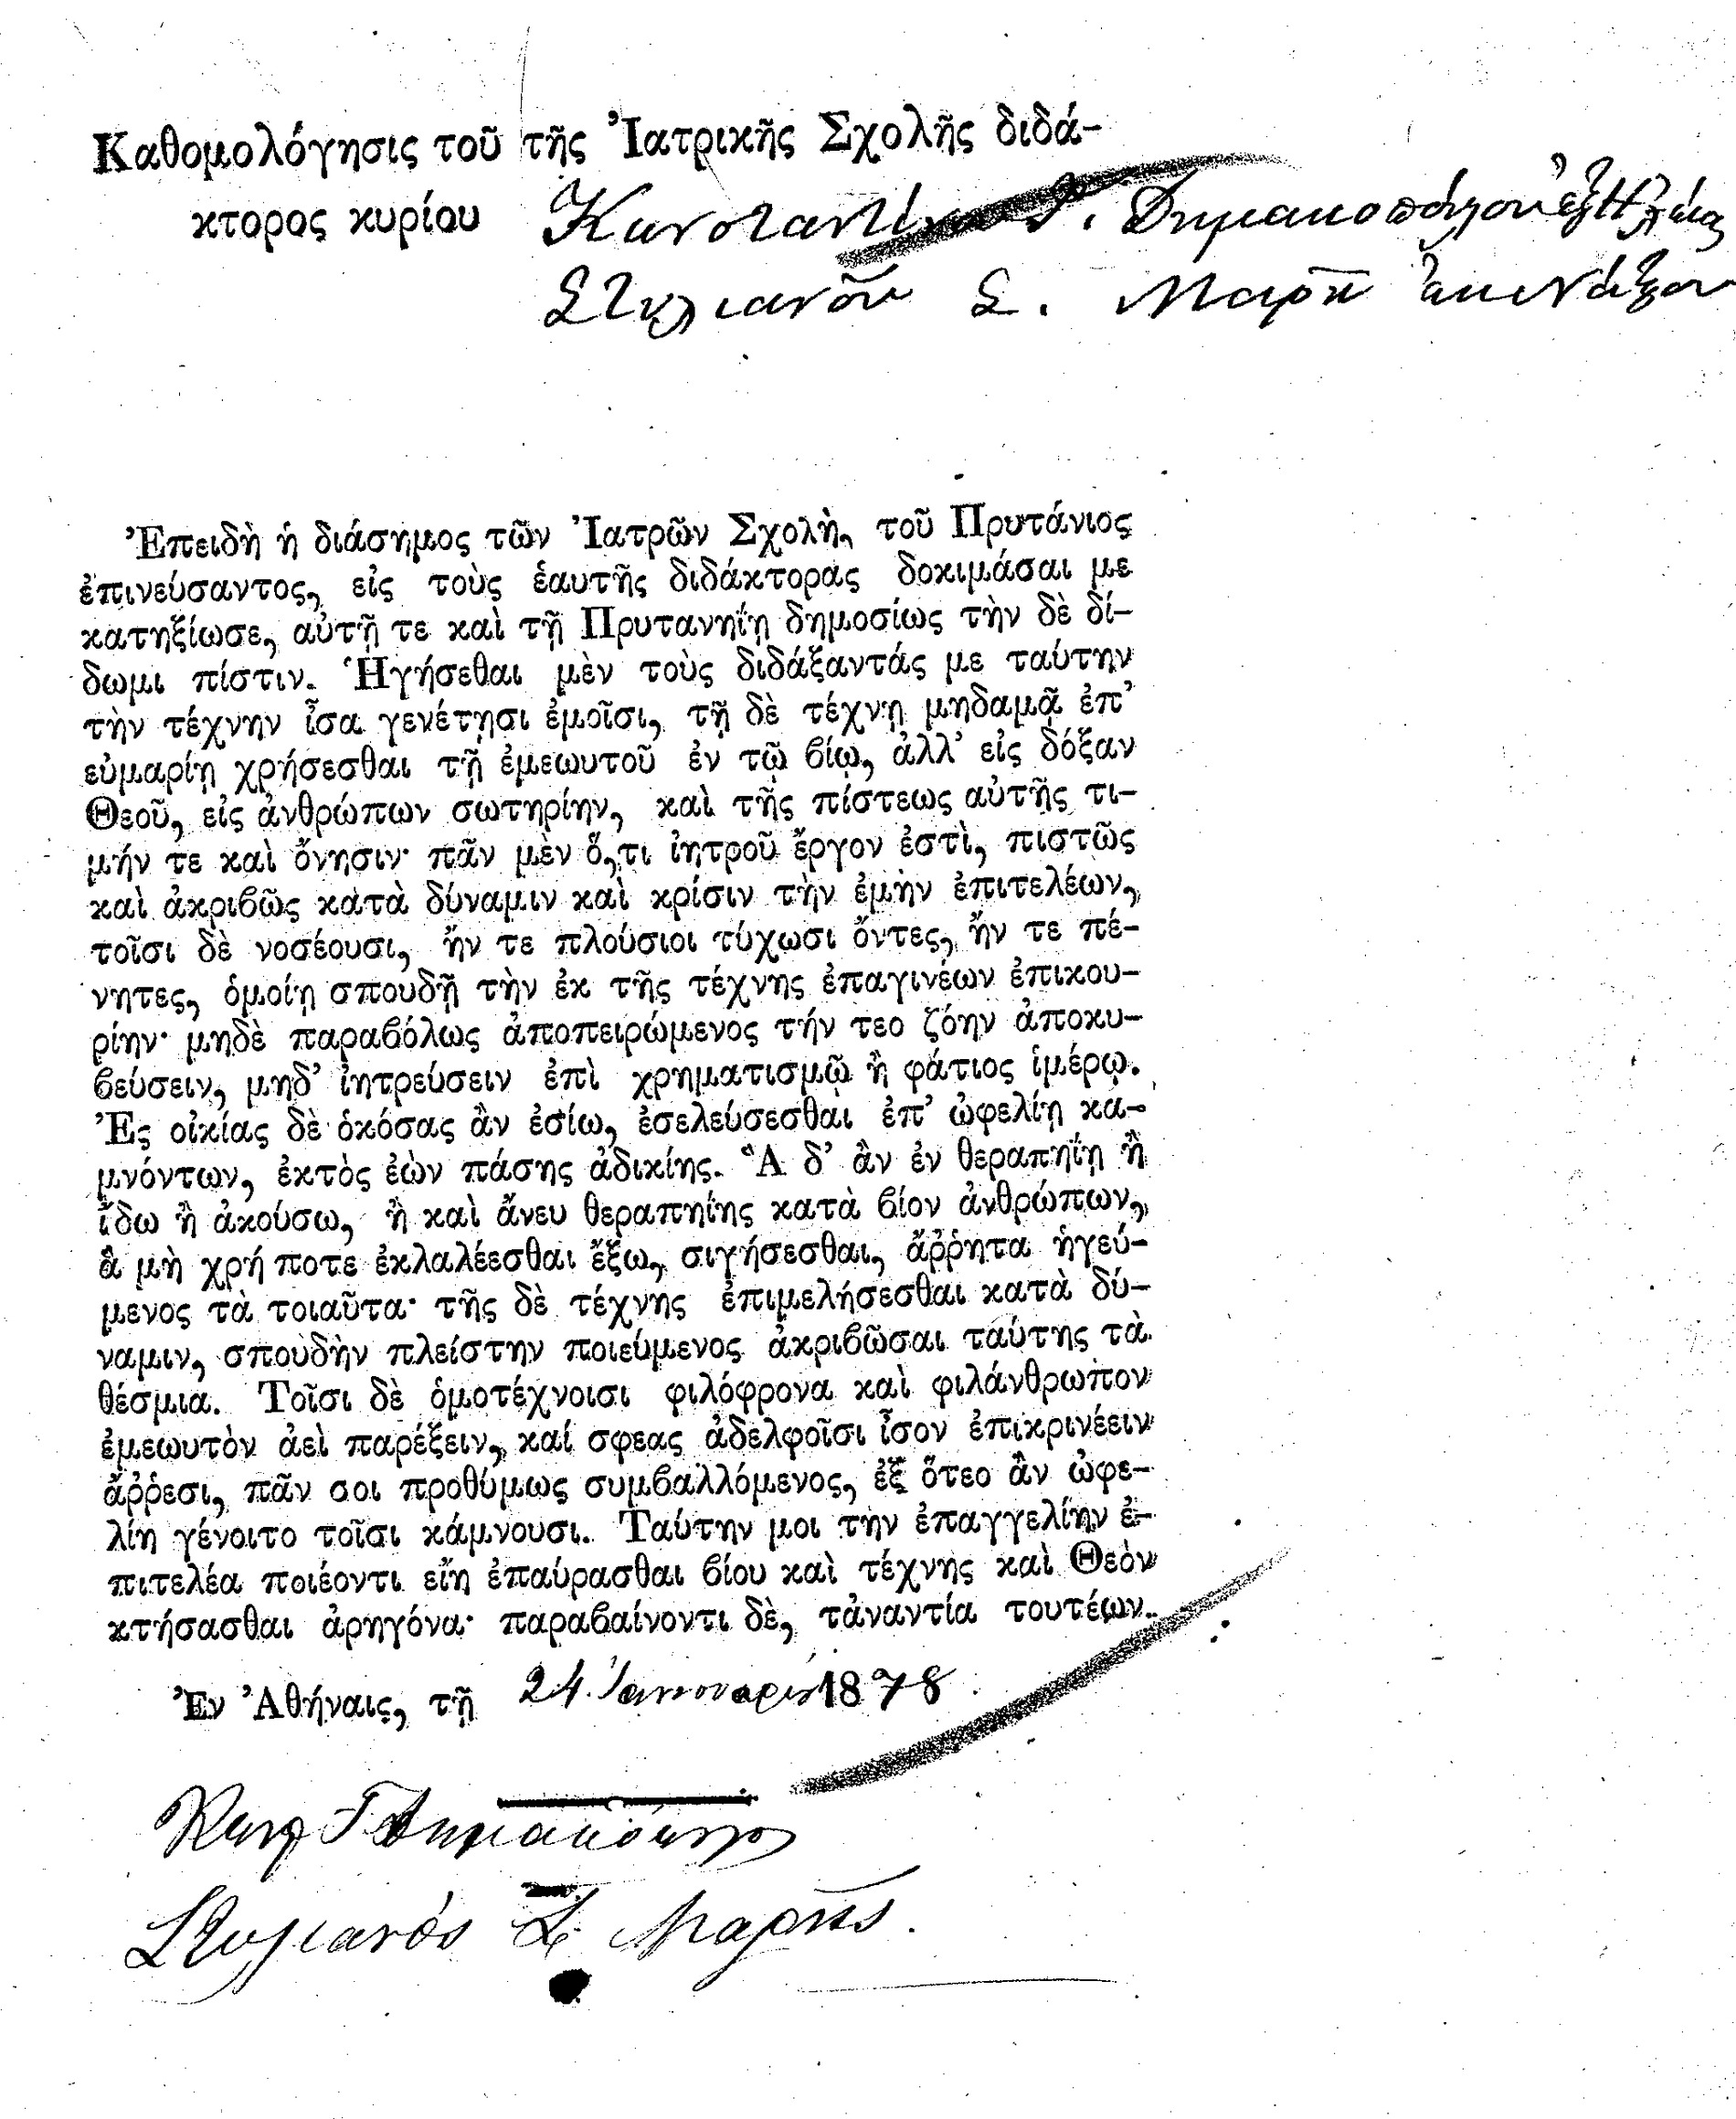 Καθομολόγησις τοῦ τῆς Ἰατρικῆς Σχολῆς διδά-
κτορος κυρίου Κωνσταντίνου Γ. Δημακοπούλου ἐξ
Στυλιανοῦ Σ. Μαρκ ἐκ Νάξου
Ἐπειδὴ ἡ διάσημος τῶν Ἰατρῶν Σχολὴ, τοῦ Πρυτάνιος
ἐπινεύσαντος, εἰς τοὺς ἑαυτῆς διδάκτορας δοκιμάσαι με
κατηξίωσε, αὐτῇ τε καὶ τῇ Πρυτανηΐῃ δημοσίως τὴν δὲ δί-
δωμι πίστιν. Ἡγήσεθαι μὲν τοὺς διδάξαντάς με ταύτην
τὴν τέχνην ἶσα γενέτῃσι ἐμοῖσι, τῇ δὲ τέχνῃ μηδαμᾷ ἐπ’
εὐμαρίῃ χρήσεσθαι τῇ ἐμεωυτοῦ ἐν τῷ βίῳ, ἀλλ’ εἰς δόξαν
Θεοῦ, εἰς ἀνθρώπων σωτηρίην, καὶ τῆς πίστεως αὐτῆς τι-
μήν τε καὶ ὄνησιν· πᾶν μὲν ὅ,τι ἰητροῦ ἔργον ἐστὶ, πιστῶς
καὶ ἀκριβῶς κατὰ δύναμιν καὶ κρίσιν τὴν ἐμὴν ἐπιτελέων,
τοῖσι δὲ νοσέουσι, ἤν τε πλούσιοι τύχωσι ὄντες, ἤν τε πέ-
νητες, ὁμοίῃ σπουδῇ τὴν ἐκ τῆς τέχνης ἐπαγινέων ἐπικου-
ρίην· μηδὲ παραβόλως ἀποπειρώμενος τήν τεο ζόην ἀποκυ-
βεύσειν, μηδ’ ἰητρεύσειν ἐπὶ χρηματισμῷ ἢ φάτιος ἱμέρῳ.
Ἐς οἰκίας δὲ ὁκόσας ἂν ἐσίω, ἐσελεύσεσθαι ἐπ’ ὠφελίῃ κα-
μνόντων, ἐκτὸς ἐὼν πάσης ἀδικίης. Ἃ δ’ ἂν ἐν θεραπηΐῃ ἢ
ἴδω ἢ ἀκούσω, ἢ καὶ ἄνευ θεραπηΐης κατὰ βίον ἀνθρώπων,
ἃ μὴ χρή ποτε ἐκλαλέεσθαι ἔξω, σιγήσεσθαι, ἄῤῥητα ἡγεύ-
μενος τὰ τοιαῦτα· τῆς δὲ τέχνης ἐπιμελήσεσθαι κατὰ δύ-
ναμιν, σπουδὴν πλείστην ποιεύμενος ἀκριβῶσαι ταύτης τὰ
θέσμια. Τοῖσι δὲ ὁμοτέχνοισι φιλόφρονα καὶ φιλάνθρωπον
ἐμεωυτὸν ἀεὶ παρέξειν, καί σφεας ἀδελφοῖσι ἶσον ἐπικρινέειν
ἄῤῥεσι, πᾶν σοι προθύμως συμβαλλόμενος, ἐξ ὅτεο ἂν ὠφε-
λίη γένοιτο τοῖσι κάμνουσι. Ταύτην μοι τὴν ἐπαγγελίην ἐ-
πιτελέα ποιέοντι εἴη ἐπαύρασθαι βίου καὶ τέχνης καὶ Θεὸν
κτήσασθαι ἀρηγόνα· παραβαίνοντι δὲ, τἀναντία τουτέων.
Ἐν Ἀθήναις, τῇ 24 Ἰανουαρίου 1878
Κωνσ Γ Δημακόπουλος
Στυλιανός Σ. Μαρκς.